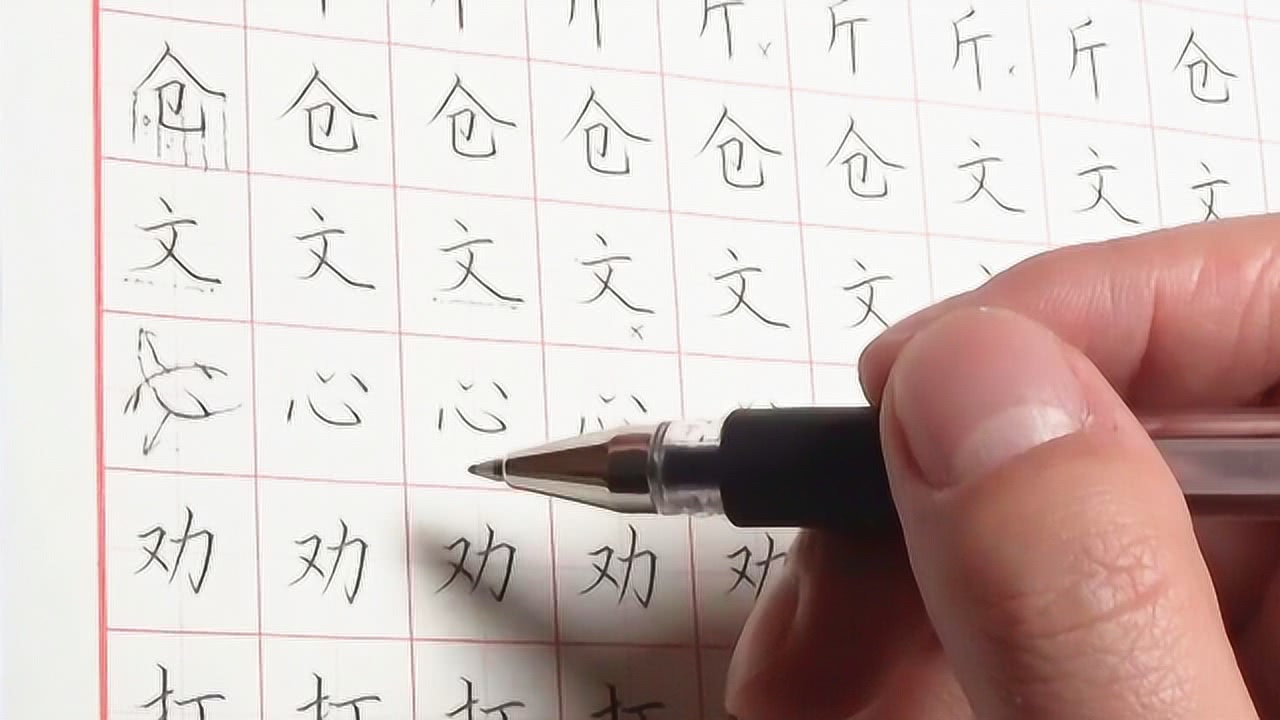 斤 斤 斤 斤 仓
仓 仓 仓 仓 仓 仓 文 文 文
文 文 文 文 文 文
心 心 心 心
劝 劝 劝 劝 劝
打 打 打 打